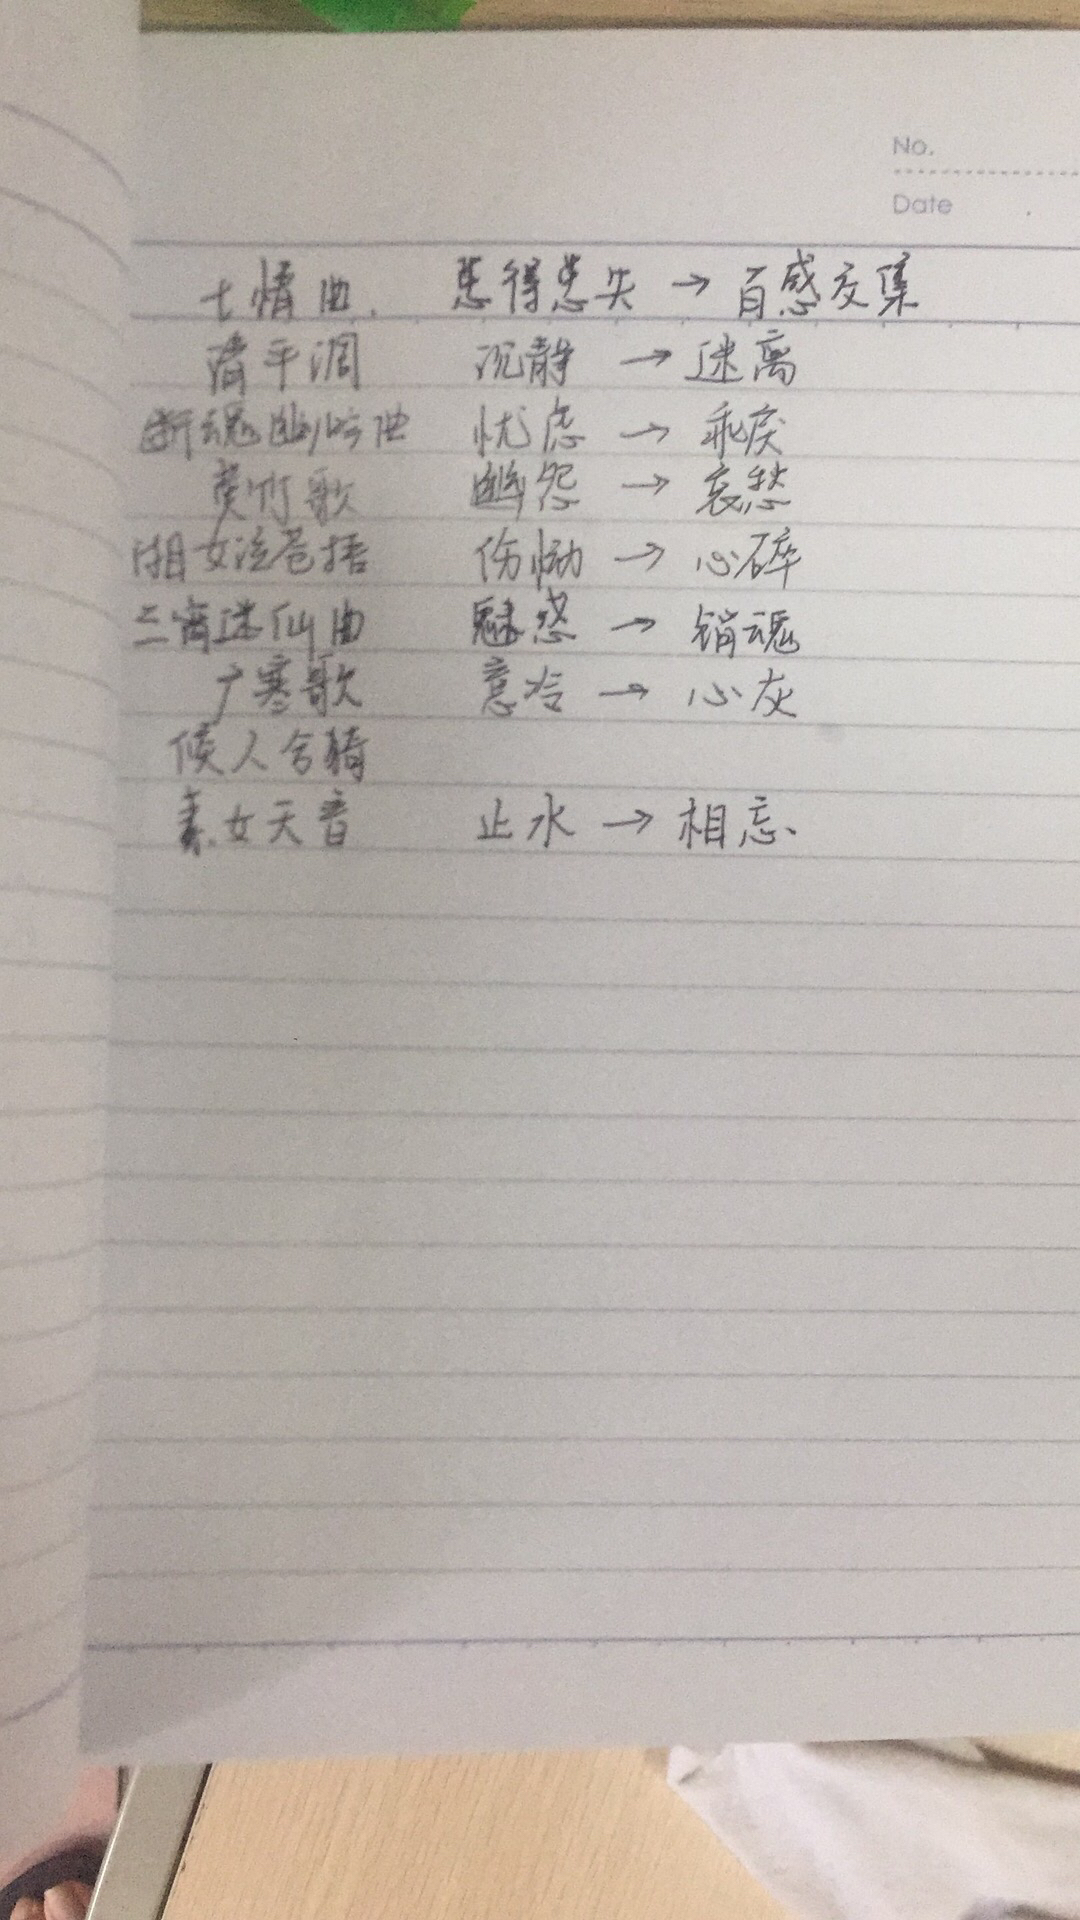 No.
Date
七情曲. 患得患失 → 百感交集
清平调 沉静 → 迷离
断魂幽吟曲 忧虑 → 乖戾
黄竹歌 幽怨 → 哀愁
湘女泣苍梧 伤恸 → 心碎
三霄迷仙曲 魅惑 → 销魂
广寒歌 意冷 → 心灰
候人兮猗
素女天音 止水 → 相忘